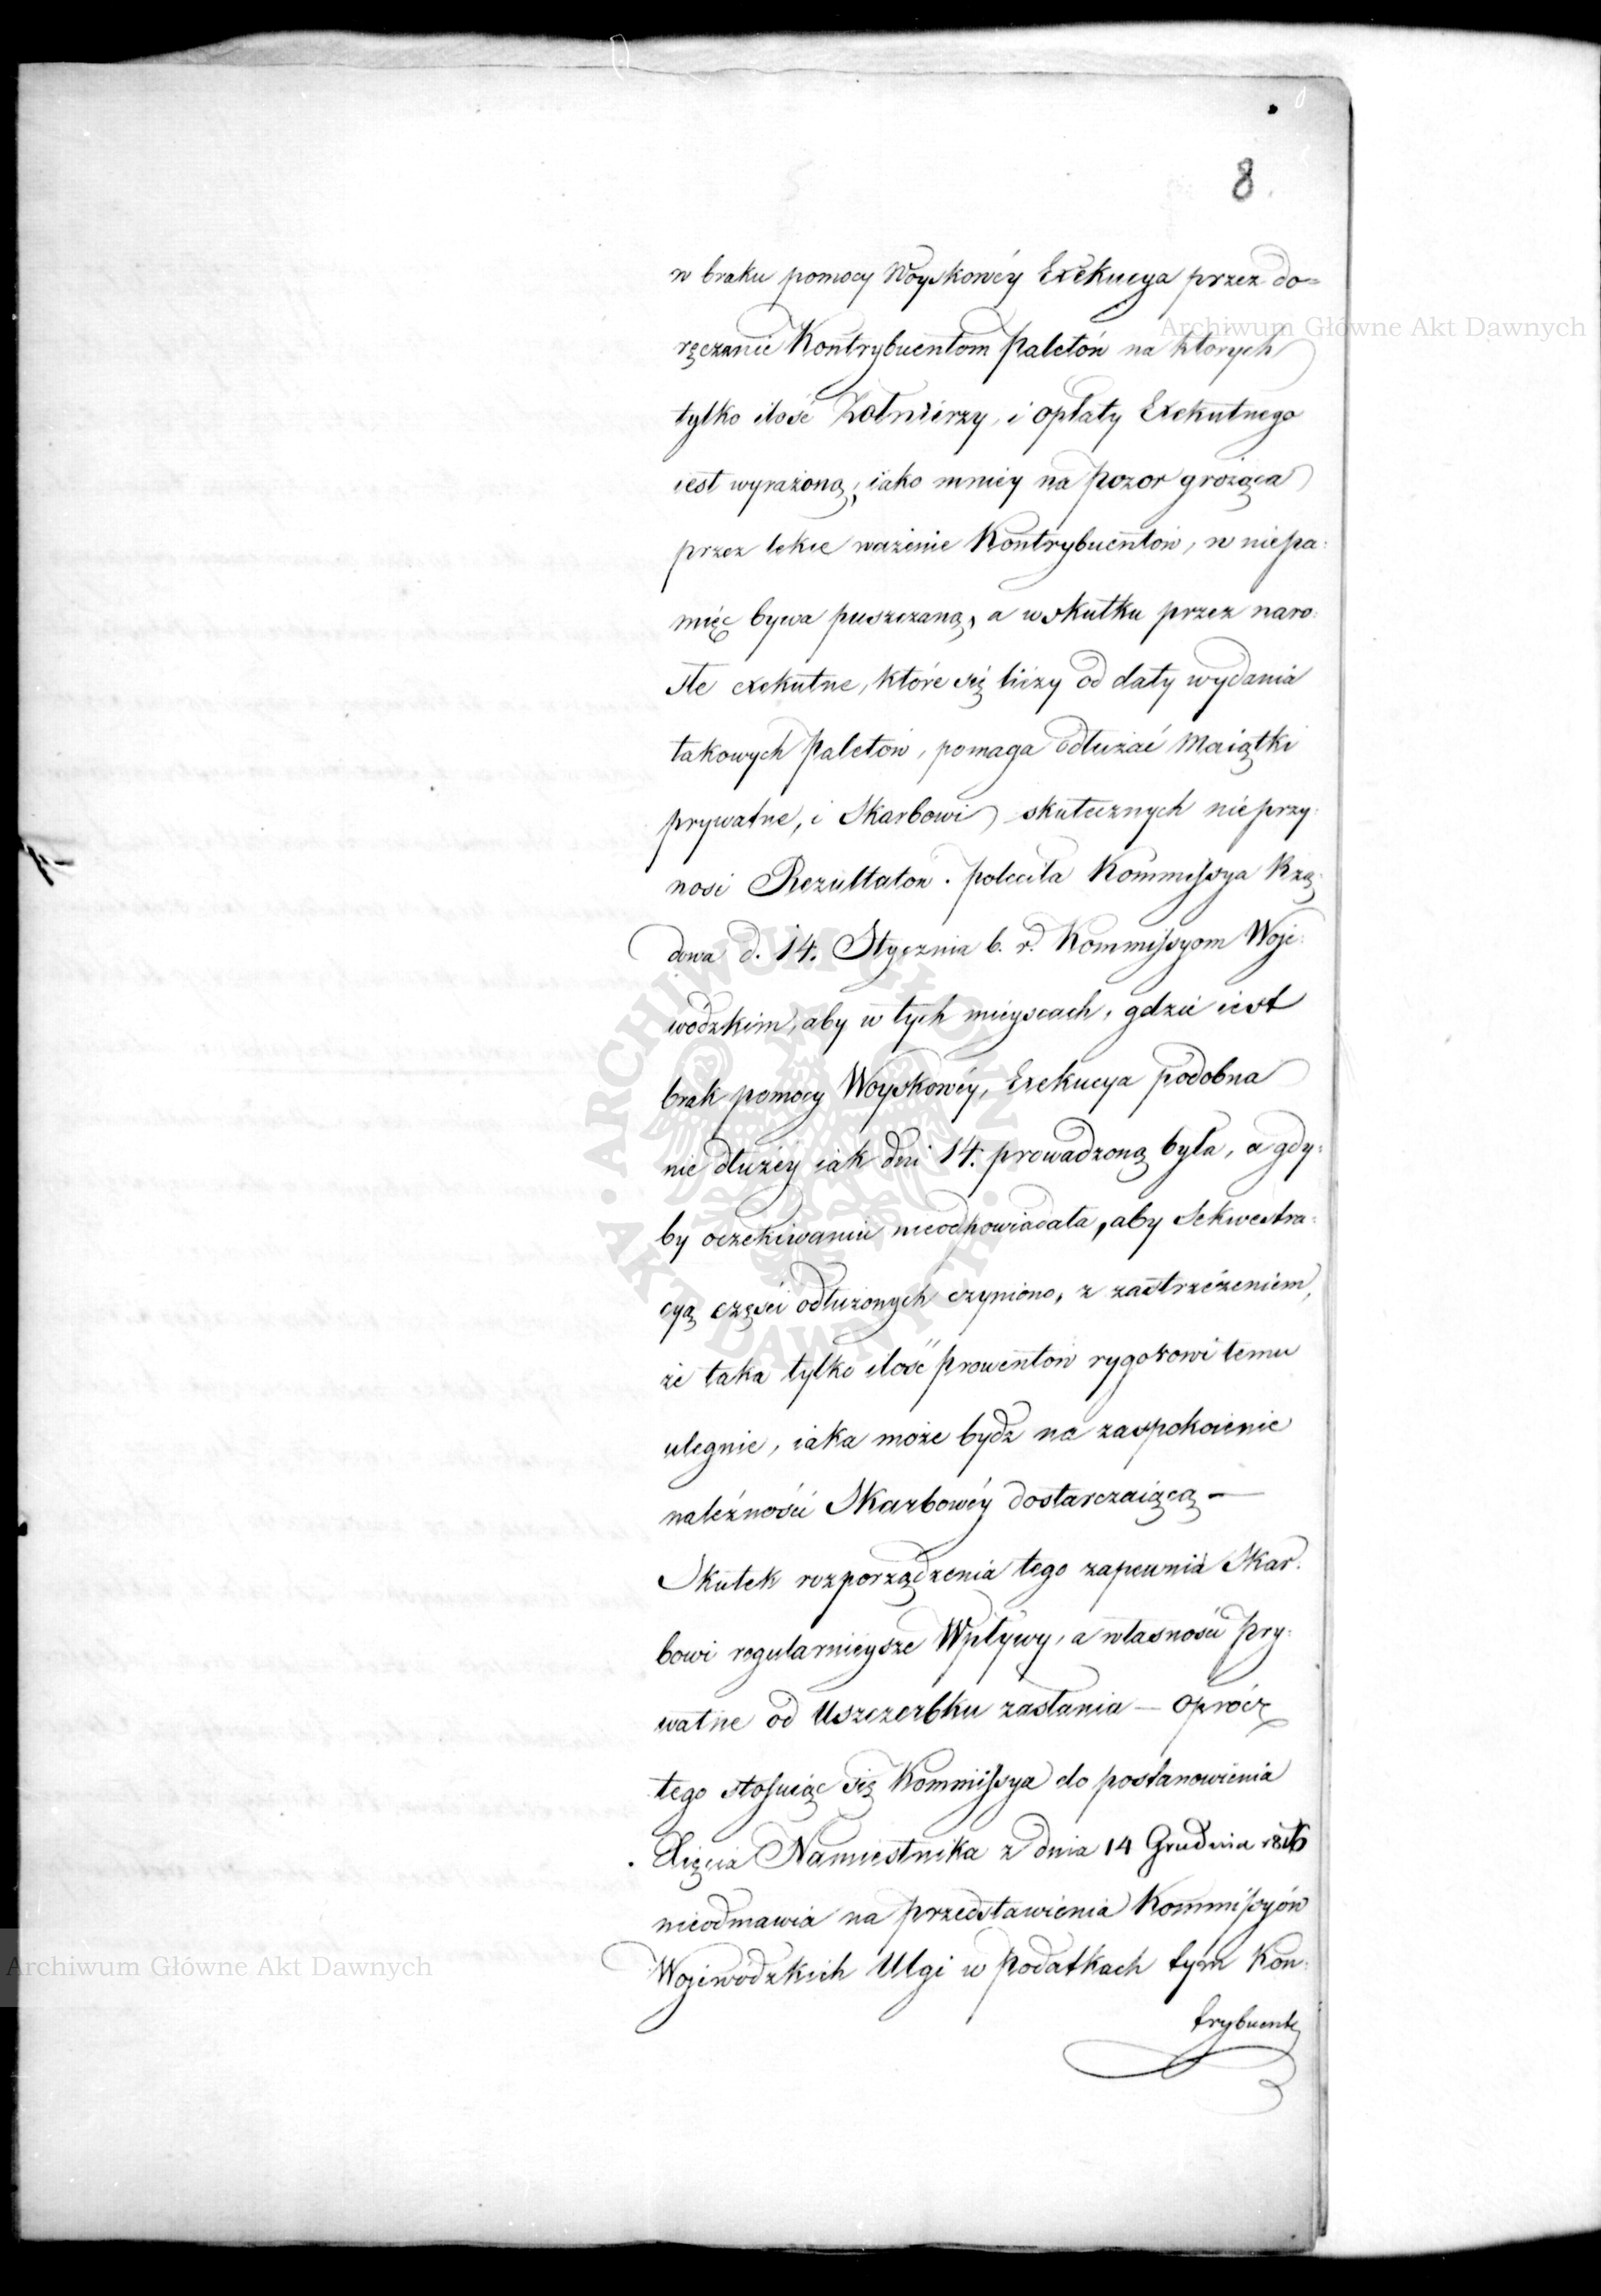 8.
w braku pomocy Woyskowéy Exekucya przez do=
ręczanie Kontrybuentom Paletów na ktorych
tylko ilość Żołnierzy, i opłaty Exekutnego
iest wyrażoną, iako mniey na pozor grożąca
przez lekce ważenie Kontrybuentów, w niepa:
mięć bywa puszczaną, a w skutku przez naro:
słe exekutne, które się liczy od daty wydania
takowych Paletów, pomaga odłużać Maiątki
prywatne, i Skarbowi skutecznych nieprzy:
nosi Rezultatow. poleciła Kommissya Rzą:
dowa d. 14. Stycznia b. r. Kommissyom Woje:
wodzkim, aby w tych mieyscach, gdzie iest
brak pomocy Woyskowéy, Exekucya podobna
nie dłużéy iak dni 14. prowadzoną była, a gdy:
by oczekiwaniu nieodpowiadała, aby Sekwestra:
cyą części odłużonych czyniono, z zastrzeżeniem,
że taka tylko ilość prowentów rygorowi temu
ulegnie, iaka może bydź na zaspokoienie
należności Skarbowéy dostarczaiącą —
Skutek rozporządzenia tego zapewnia Skar:
bowi regularnieysze Wpływy, a własności pry:
watne od Uszczerbku zasłania — oprócz
tego stosuiąc się Kommissya do postanowienia
Xięcia Namiestnika z dnia 14 Grudnia 1816
nieodmawia na przedstawienia Kommissyów
Wojewódzkich Ulgi w Podatkach tym Kon:
trybuentę
Archiwum Główne Akt Dawnych
Archiwum Główne Akt Dawnych
ARCHIWUM GŁÓWNE · AKT DAWNYCH ·